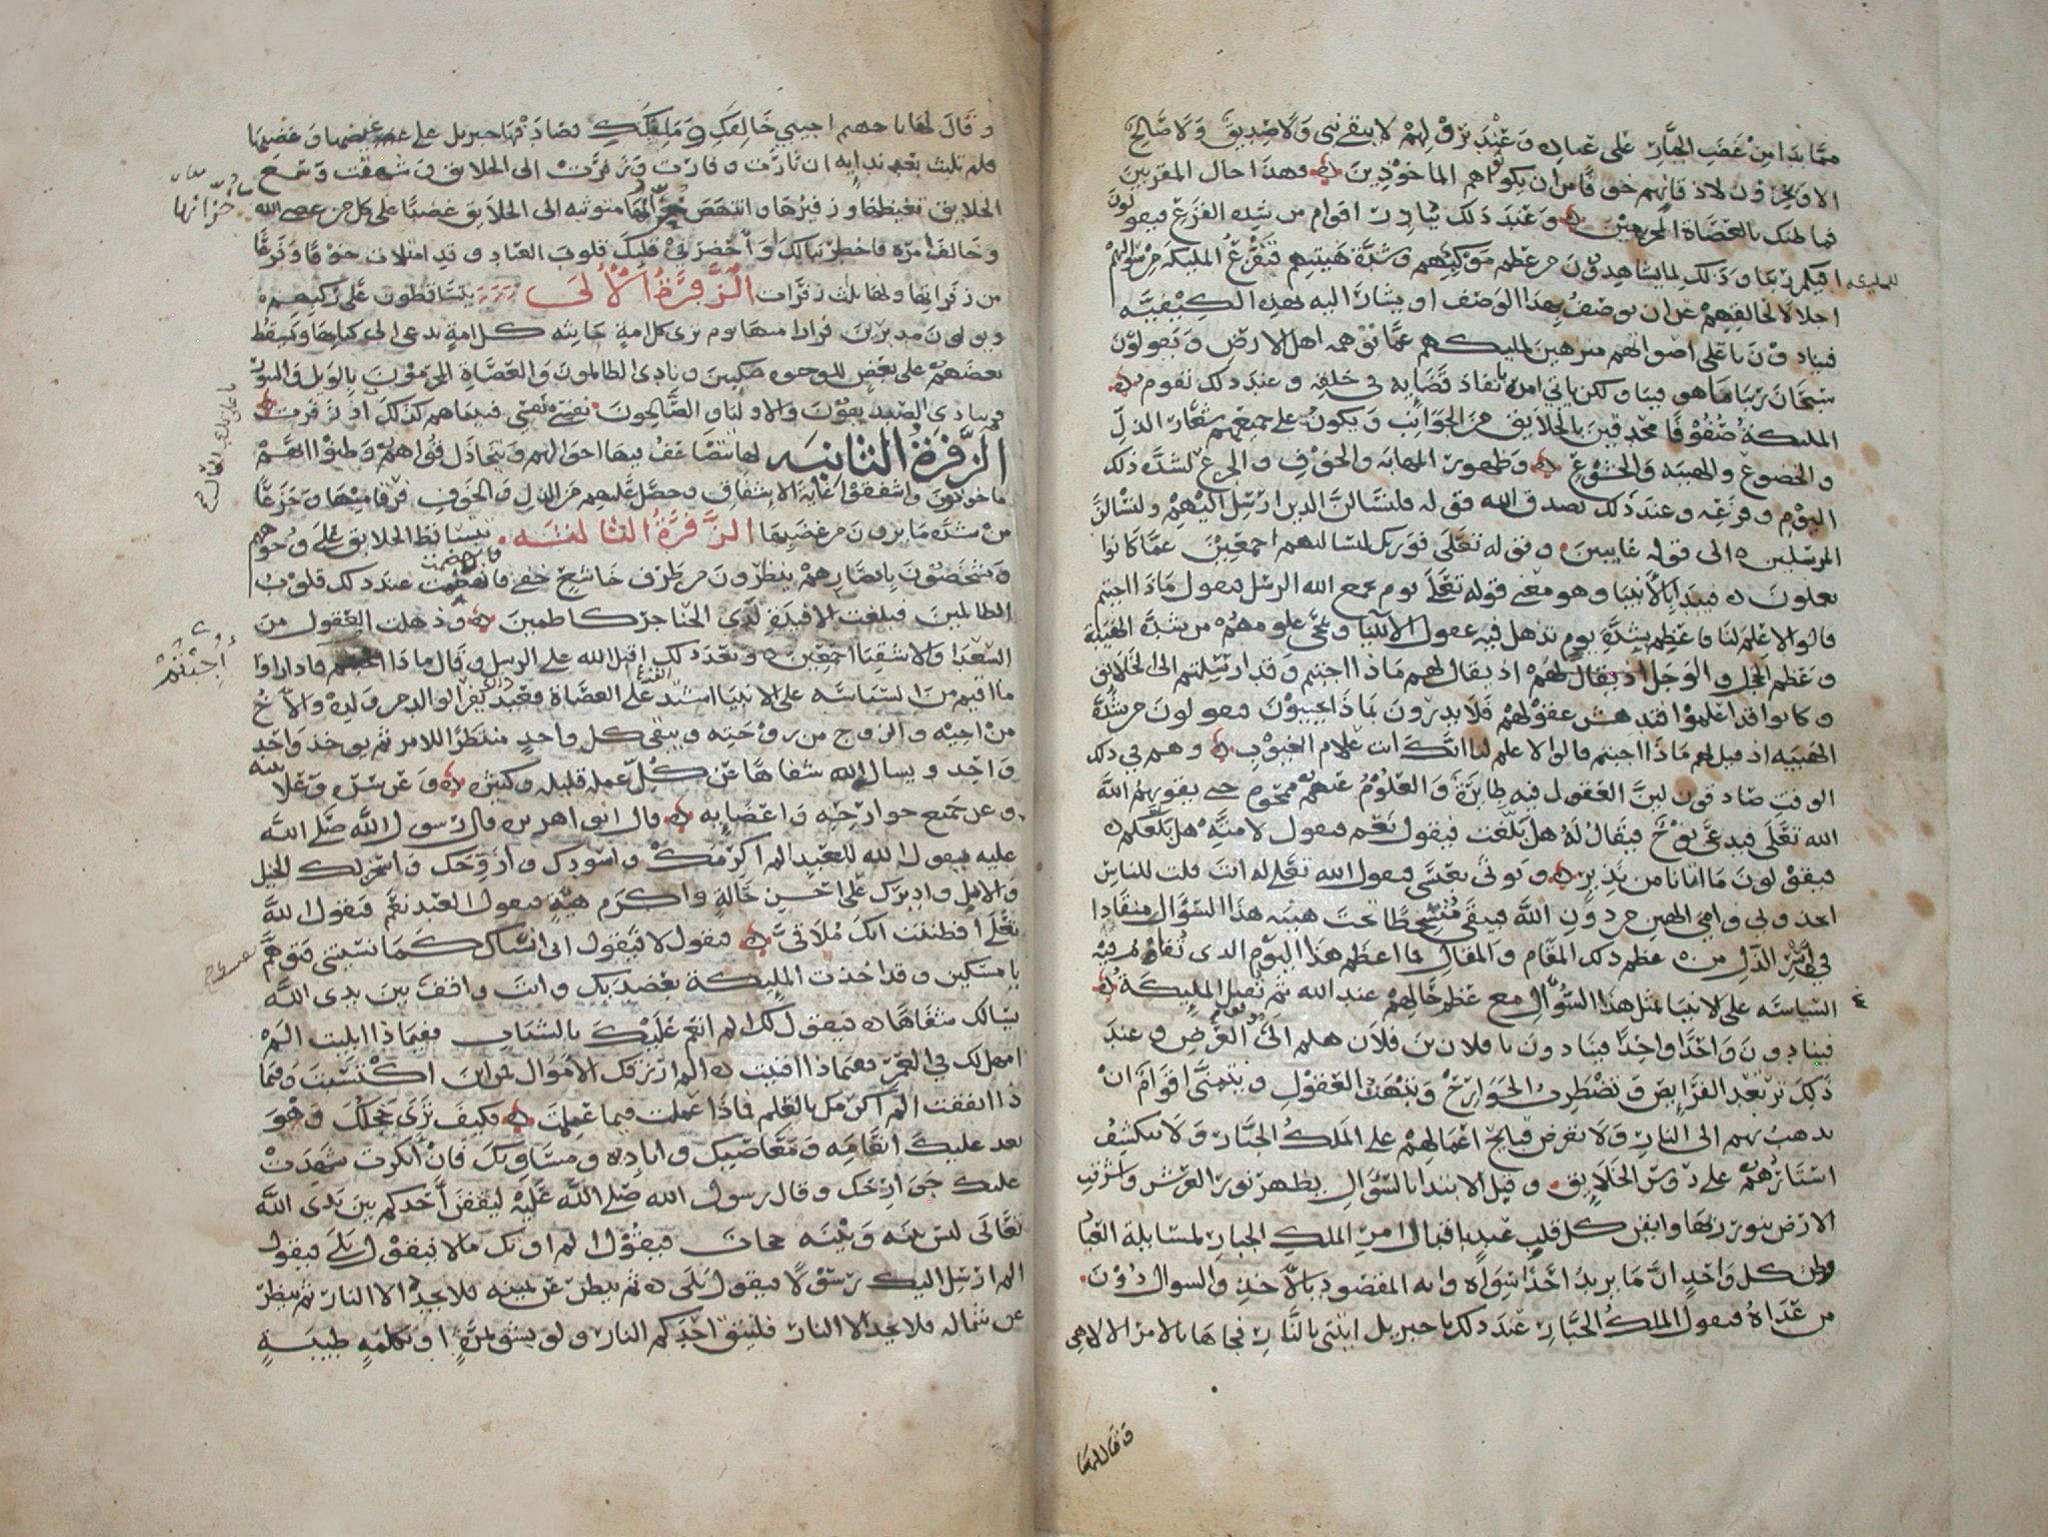 مما بدا من غضب الجبار على عباده وعند بروقهم لا يبقى نبي ولا صديق ولا صالح
الا ويخرون لاذقانهم خوفا من ان يكونوا هم الماخوذين وهذا حال المقربين
فما ظنك بالعصاة المجرمين وعند ذلك يبادر اقوام من شدة الفزع فيقولون
افيكم ربنا وذلك لما يشاهدون من عظم موكبهم وشدة هيبتهم فتفزع المليكة من سوالهم
اجلالا لخالقهم عن ان يوصف بهذا الوصف او يشار اليه بهذه الكيفية
فينادون باعلى اصواتهم منزهين لمليكهم عما توهمه اهل الارض ويقولون
سبحان ربنا ما هو فينا ولكن ياتي امره بانفاذ قضايه في خلقه وعند ذلك تقوم
المليكة صفوفا محدقين بالخلايق من الجوانب ويكون على جميعهم شعار الذل
والخضوع والهيبة والخشوع وظهور المهابة والخوف والجزع لشدة ذلك
اليوم وفزعه وعند ذلك يصدق الله قوله فلنسالن الذين ارسل اليهم ولنسالن
المرسلين الى قوله غايبين وقوله تعلى فوربك لنسالنهم اجمعين عما كانوا
يعملون فيبدا بالانبيا وهو معنى قوله تعلى يوم يجمع الله الرسل فيقول ماذا اجبتم
قالوا لا علم لنا فاعظم بشدة يوم تذهل فيه عقول الانبيا وتمحى علومهم من شدة الهيبة
وعظم الخجل والوجل اذ يقال لهم اذ يقال لهم ماذا اجبتم وقد ارسلتم الى الخلايق
وكانوا قد علموا فتدهش عقولهم فلا يدرون بماذا يجيبون فيقولون من شدة
الهيبة اذ قيل لهم ماذا اجبتم قالوا لا علم لنا انك انت علام الغيوب وهم في ذلك
الوقت صادقون لان العقول فيه طايرة والعلوم عنهم ممحوة حتى يقويهم الله
الله تعلى فيدعى نوح فيقال له هل بلغت فيقول نعم فيقول لامته هل بلغكم
فيقولون ما اتانا من نذير ويوتى بعيسى فيقول الله تعلى له انت قلت للناس
اتخذوني وامي الهين من دون الله فيبقى متشحطا تحت هيبة هذا السوال منقادا
في الذل من عظم ذلك المقام والمقال فما اعظم هذا اليوم الذي تقام فيه
السياسة على الانبيا لمثل هذا السوال مع عظم حالهم عند الله ثم تقبل المليكة
فينادون واحدا واحدا فينادون يا فلان بن فلان هلم الى العرض وعند
ذلك ترتعد الفرايص وتضطرب الجوارح وتبهت العقول ويتمنى اقوام ان
يذهب بهم الى النار ولا تعرض قبايح اعمالهم على الملك الجبار ولا ينكشف
استارهم على روس الخلايق وقبل الابتدا بالسوال يظهر نور العرش واشرقت
الارض بنور ربها وايقن كل قلب عبد باقبال امر الملك الجبار لمسايلة العباد
وظن كل واحد ان ما يريد احدا سواه وانه المقصود بالاخذ والسوال دون
من عداه فيقول الملك الجبار عند ذلك يا جبريل ايتني بالنار فجاها بالامر الالاهي
وقال لها
وقال لها يا جهنم اجيبي خالقك ومليكك فصادفها جبريل على غيضها وغضبها
فلم تلبث بعد ندايه ان ثارت وفارت وزفرت الى الخلايق وشهقت وسمع
الخلايق تغيظها وزفيرها وانتهض خزانها متوثبة الى الخلايق غضبا على كل من عصى الله
وخالف امره فاخطر ببالك واحضر في قلبك قلوب العباد وقد امتلات خوفا وفزعا
من زفراتها ولها ثلث زفرات الزفرة الاولى يتساقطون على ركبهم
ويولون مدبرين فرارا منها يوم ترى كل امة جاثية كل امة تدعى الى كتابها ويسقط
بعضهم على بعض للوجوه منكبين وينادي الظالمون والعصاة المجرمون بالويل والثبور
وينادي الصديقون والاوليا والصالحون نفسي نفسي فبينما هم كذلك اذ زفرت
الزفرة الثانية لها يتضاعف فيها احوالهم ويتخاذل قواهم وظنوا انهم
ماخوذون واشفقوا غاية الاشفاق وحصل عليهم من الذل والخوف فرقا منها وجزعا
من شدة ما يرون من غضبها الزفرة الثالثة يتساقط الخلايق على وجوههم
ويشخصون بابصارهم ينظرون من طرف خاشع خفي فانهضمت عند ذلك قلوب
الظالمين فبلغت الافيدة لدى الحناجر كاظمين وذهلت العقول من
السعدا والاشقيا اجمعين وبعد ذلك اقبل الله على الرسل وقال ماذا اجبتم فاذا راوا
ما اقيم من السياسة على الانبيا اشتد الفزع على العصاة فعند ذلك يفر الوالد من ولده والاخ
من اخيه والزوج من زوجته ويبقى كل واحد منتظرا للامر ثم يوخذ واحد
واحد ويسال الله شفاها عن كل عمله قليله وكثيره وعن سره وعلانيته
وعن جميع جوارحه واعضايه قال ابو اهريره قال رسول الله صلى الله
عليه فيقول الله للعبد الم اكرمك واسودك وازوجك واسخر لك الخيل
والابل وادبرك على احسن حالة واكرم هيئة فيقول العبد نعم فيقول الله
تعلى افظننت انك ملاقي فيقول لا فيقول اني انساك كما نسيتني فتوهم
يا مسكين وقد اخذت المليكة بعضديك وانت واقف بين يدي الله
يسالك شفاها فيقول لك الم انعم عليك بالشباب ففيماذا ابليت الم
امهل لك في العمر فعماذا افنيت الم ارزقك الاموال من اين اكتسبت وفيما
ذا انفقت الم اكرمك بالعلم فماذا عملت فيما علمت فكيف ترى خجلك وهو
يعد عليك انعامه ومعاصيك واياديه ومساويك فان انكرت شهدت
عليك جوارحك وقال رسول الله صلى الله عليه ليقفن احدكم بين يدي الله
تعالى ليس بينه وبينه حجاب فيقول الم اوتك مالا فيقول بلى فيقول
الم ارسل اليك رسولا فيقول بلى ثم ينظر عن يمينه فلا يجد الا النار ثم ينظر
عن شماله فلا يجد الا النار فليتق احدكم النار ولو بشق تمرة او بكلمة طيبة
خزانها
أُجِبْتُمْ